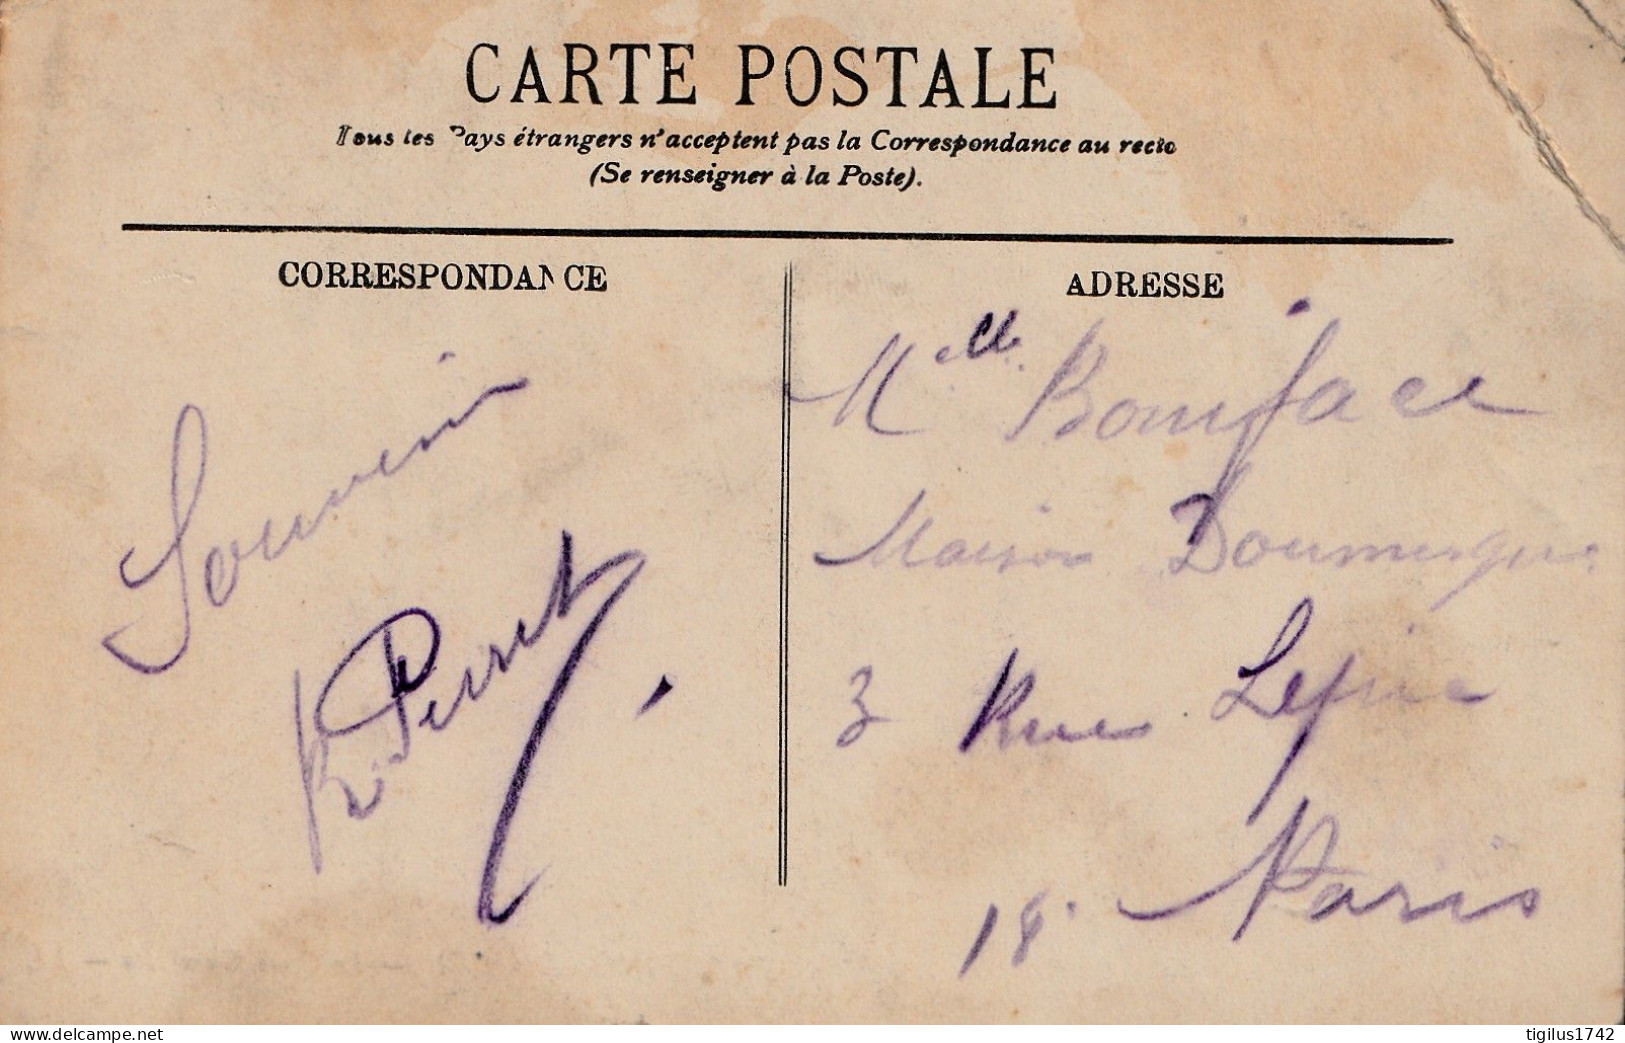 CARTE POSTALE
Tous les Pays étrangers n'acceptent pas la Correspondance au recto
(Se renseigner à la Poste).
CORRESPONDANCE
Souvenir
R. Perret
ADRESSE
Melle Boniface
Maison Doumergue
3 Rue Lepic
18. Paris
www.delcampe.net
tigilus1742